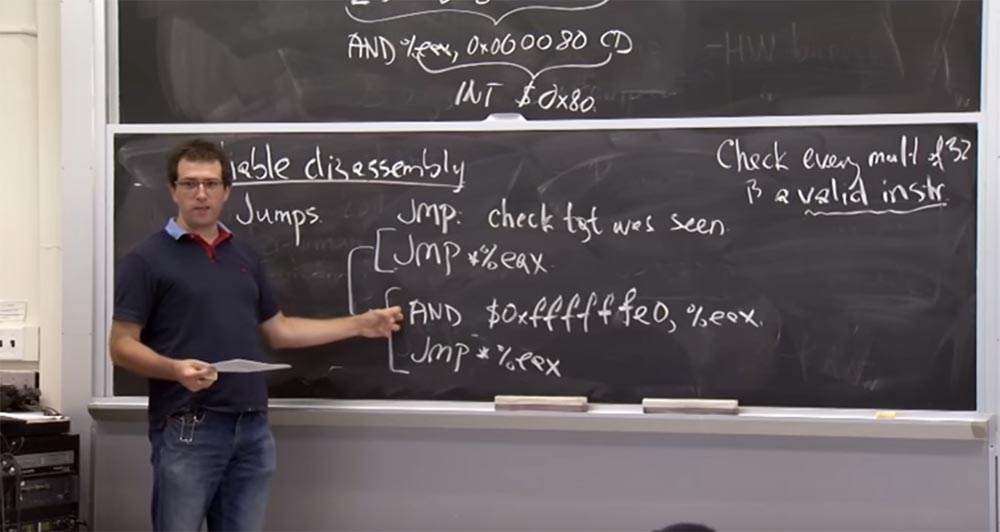 AND %eax, 0x000080 CD
INT $0x80.
-HW
iable disassembly
Check every mult of 32
is a valid instr.
Jumps. Jmp: check tgt was seen
Jmp *%eax.
AND $0xffffffe0, %eax.
Jmp *%eax